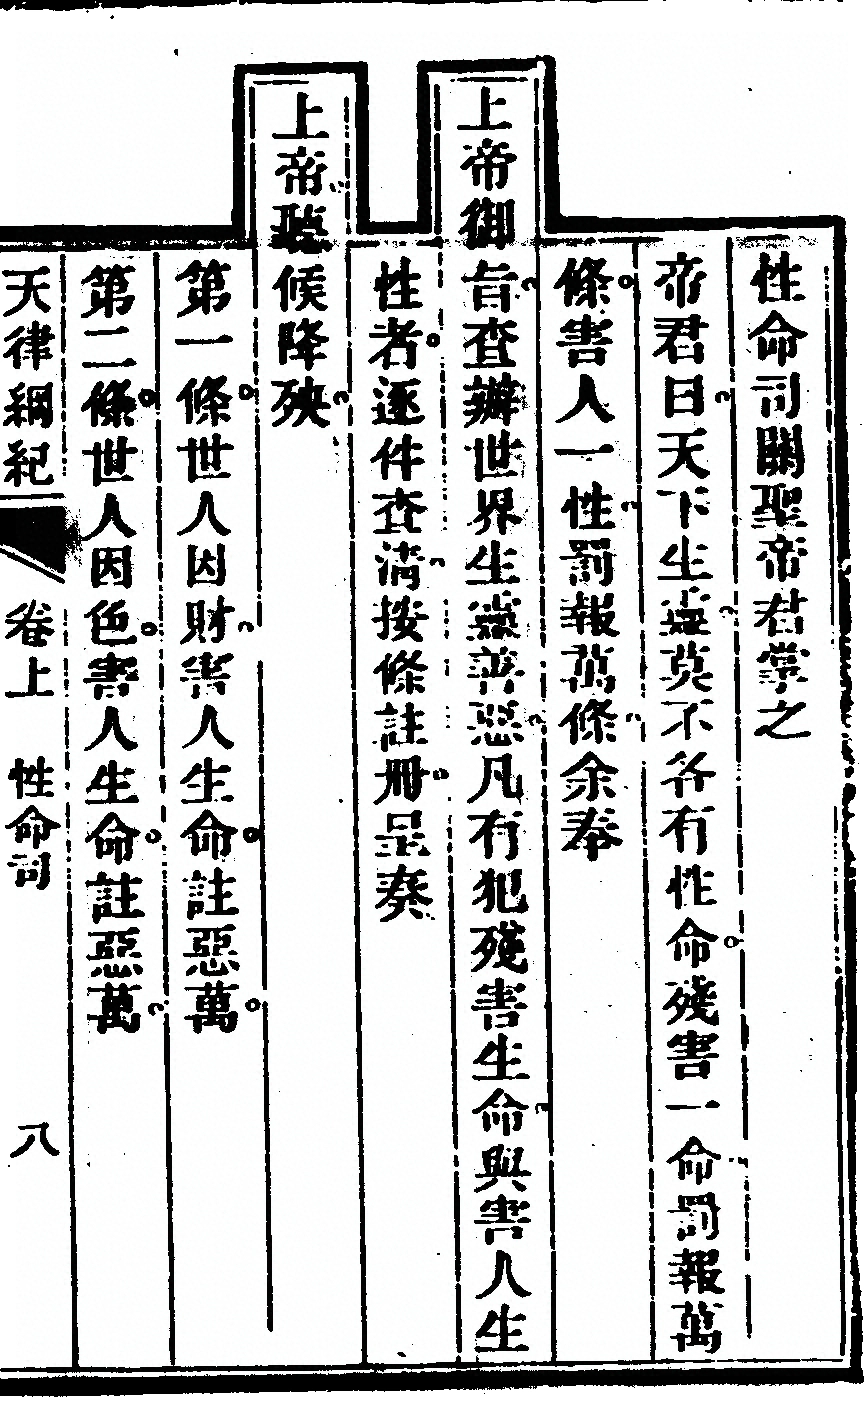 性命司關聖帝君掌之
帝君曰天下生靈莫不各有性命殘害一命罰報萬
條害人一性罰報萬條余奉
上帝御旨查辦世界生靈善惡凡有犯殘害生命與害人生
性者逐件查清按條註冊呈奏
上帝聽候降殃
第一條世人因財害人生命註惡萬
第二條世人因色害人生命註惡萬
天律綱紀 卷上 性命司 八